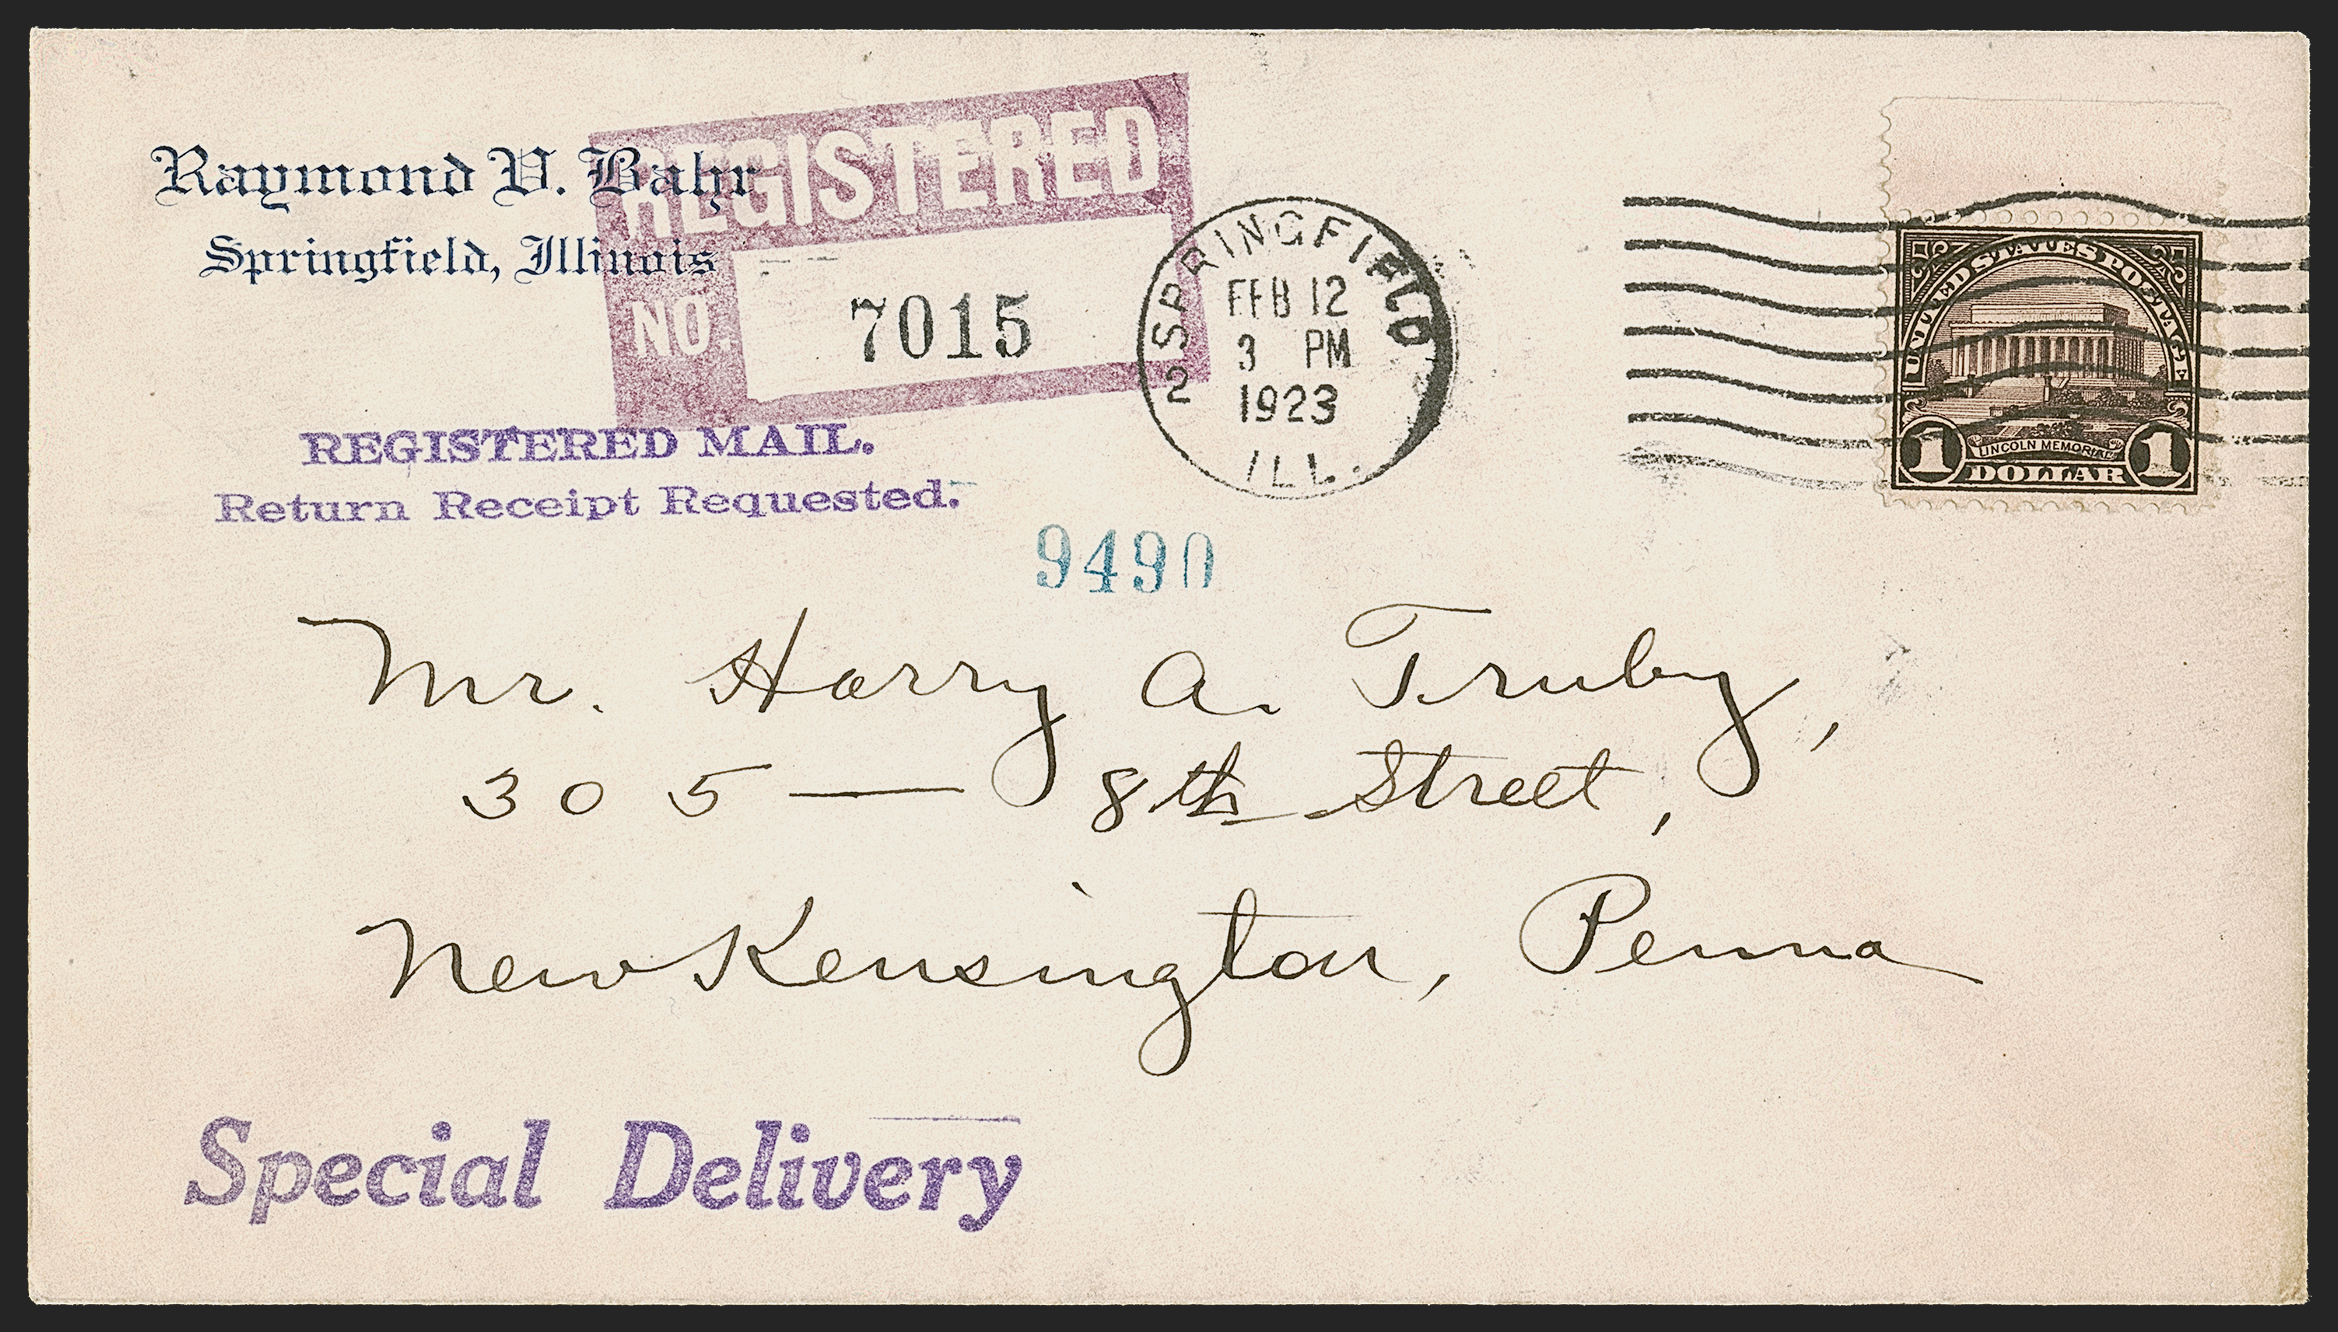 Raymond V. Bahr
Springfield, Illinois
REGISTERED
NO. 7015
REGISTERED MAIL.
Return Receipt Requested.
SPRINGFIELD
2
FEB 12
3 PM
1923
ILL.
UNITED STATES POSTAGE
LINCOLN MEMORIAL
1 DOLLAR 1
9490
Mr. Harry A. Truby,
305 — 8th Street,
New Kensington, Penna
Special Delivery